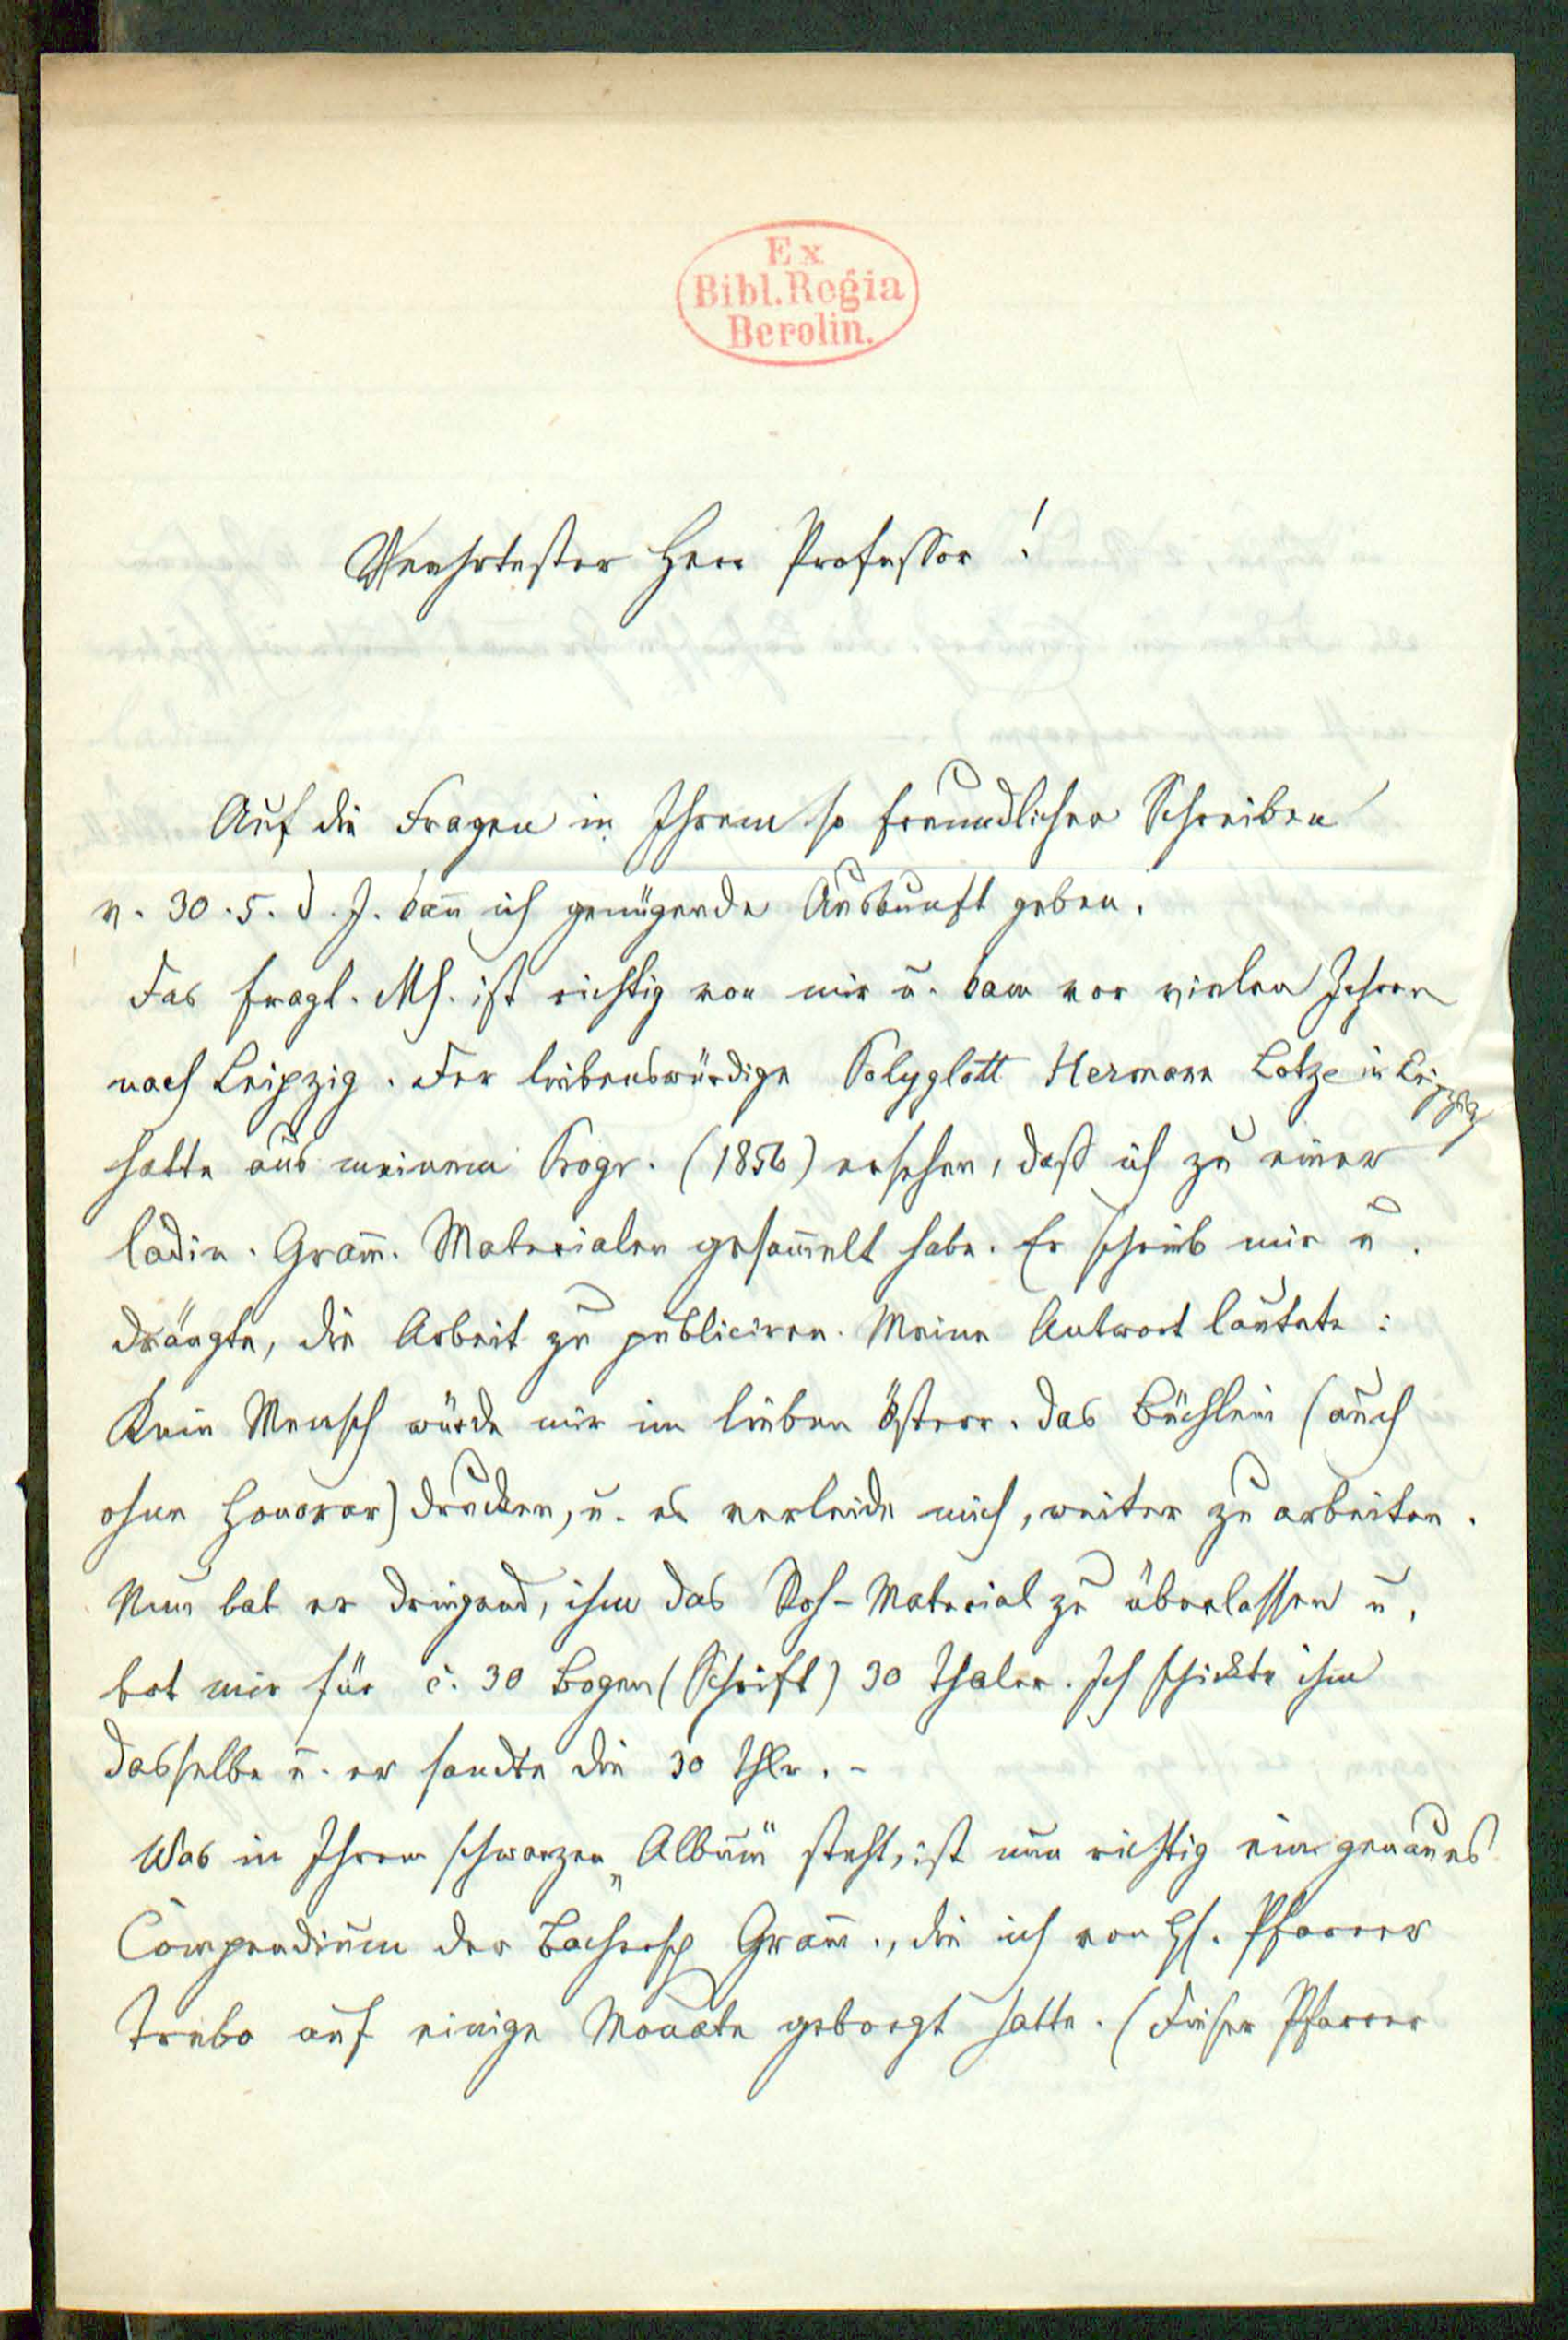 Ex
Bibl. Regia
Berolin.
Verehrtester Herr Professor!
Auf die Fragen in Ihrem so freundlichen Schreiben
v. 30.5. d. J. kañ ich genügende Auskunft geben.
Das fragl. Ms. ist richtig von mir u. kam vor vielen Jahren
nach Leipzig. Der liebenswürdige Polyglott Hermann Lotze in Leipzig
hatte aus meinem Progr. (1856) ersehen, daß ich zu einer
ladin. Gram̃. Materialen gesam̃elt habe. Er schrieb mir u.
drängte, die Arbeit zu publiciren. Meine Antwort lautete:
Kein Mensch würde mir im lieben Österr. das Büchlein (auch
ohne Honorar) drucken, u. es verleide mich, weiter zu arbeiten.
Nun bat er dringend, ihm das Roh-Material zu überlassen u.
bot mir für c. 30 Bogen (Schrift) 30 Thaler. Ich schickte ihm
dasselbe u. er sandte die 30 Thlr. -
Was in Ihrem schwarzen „Album" steht, ist nun richtig ein genaues
Compendium der Gram̃., die ich von H. Pfarrer
Trebo auf einige Monate geborgt hatte. (Dieser Pfarrer